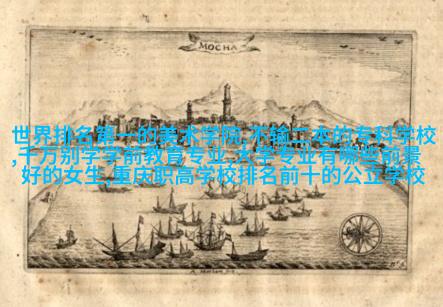 MOCHA
世界排名第一的美术学院,不输二本的专科学校
,千万别学学前教育专业,大学专业有哪些前景
好的女生,重庆职高学校排名前十的公立学校